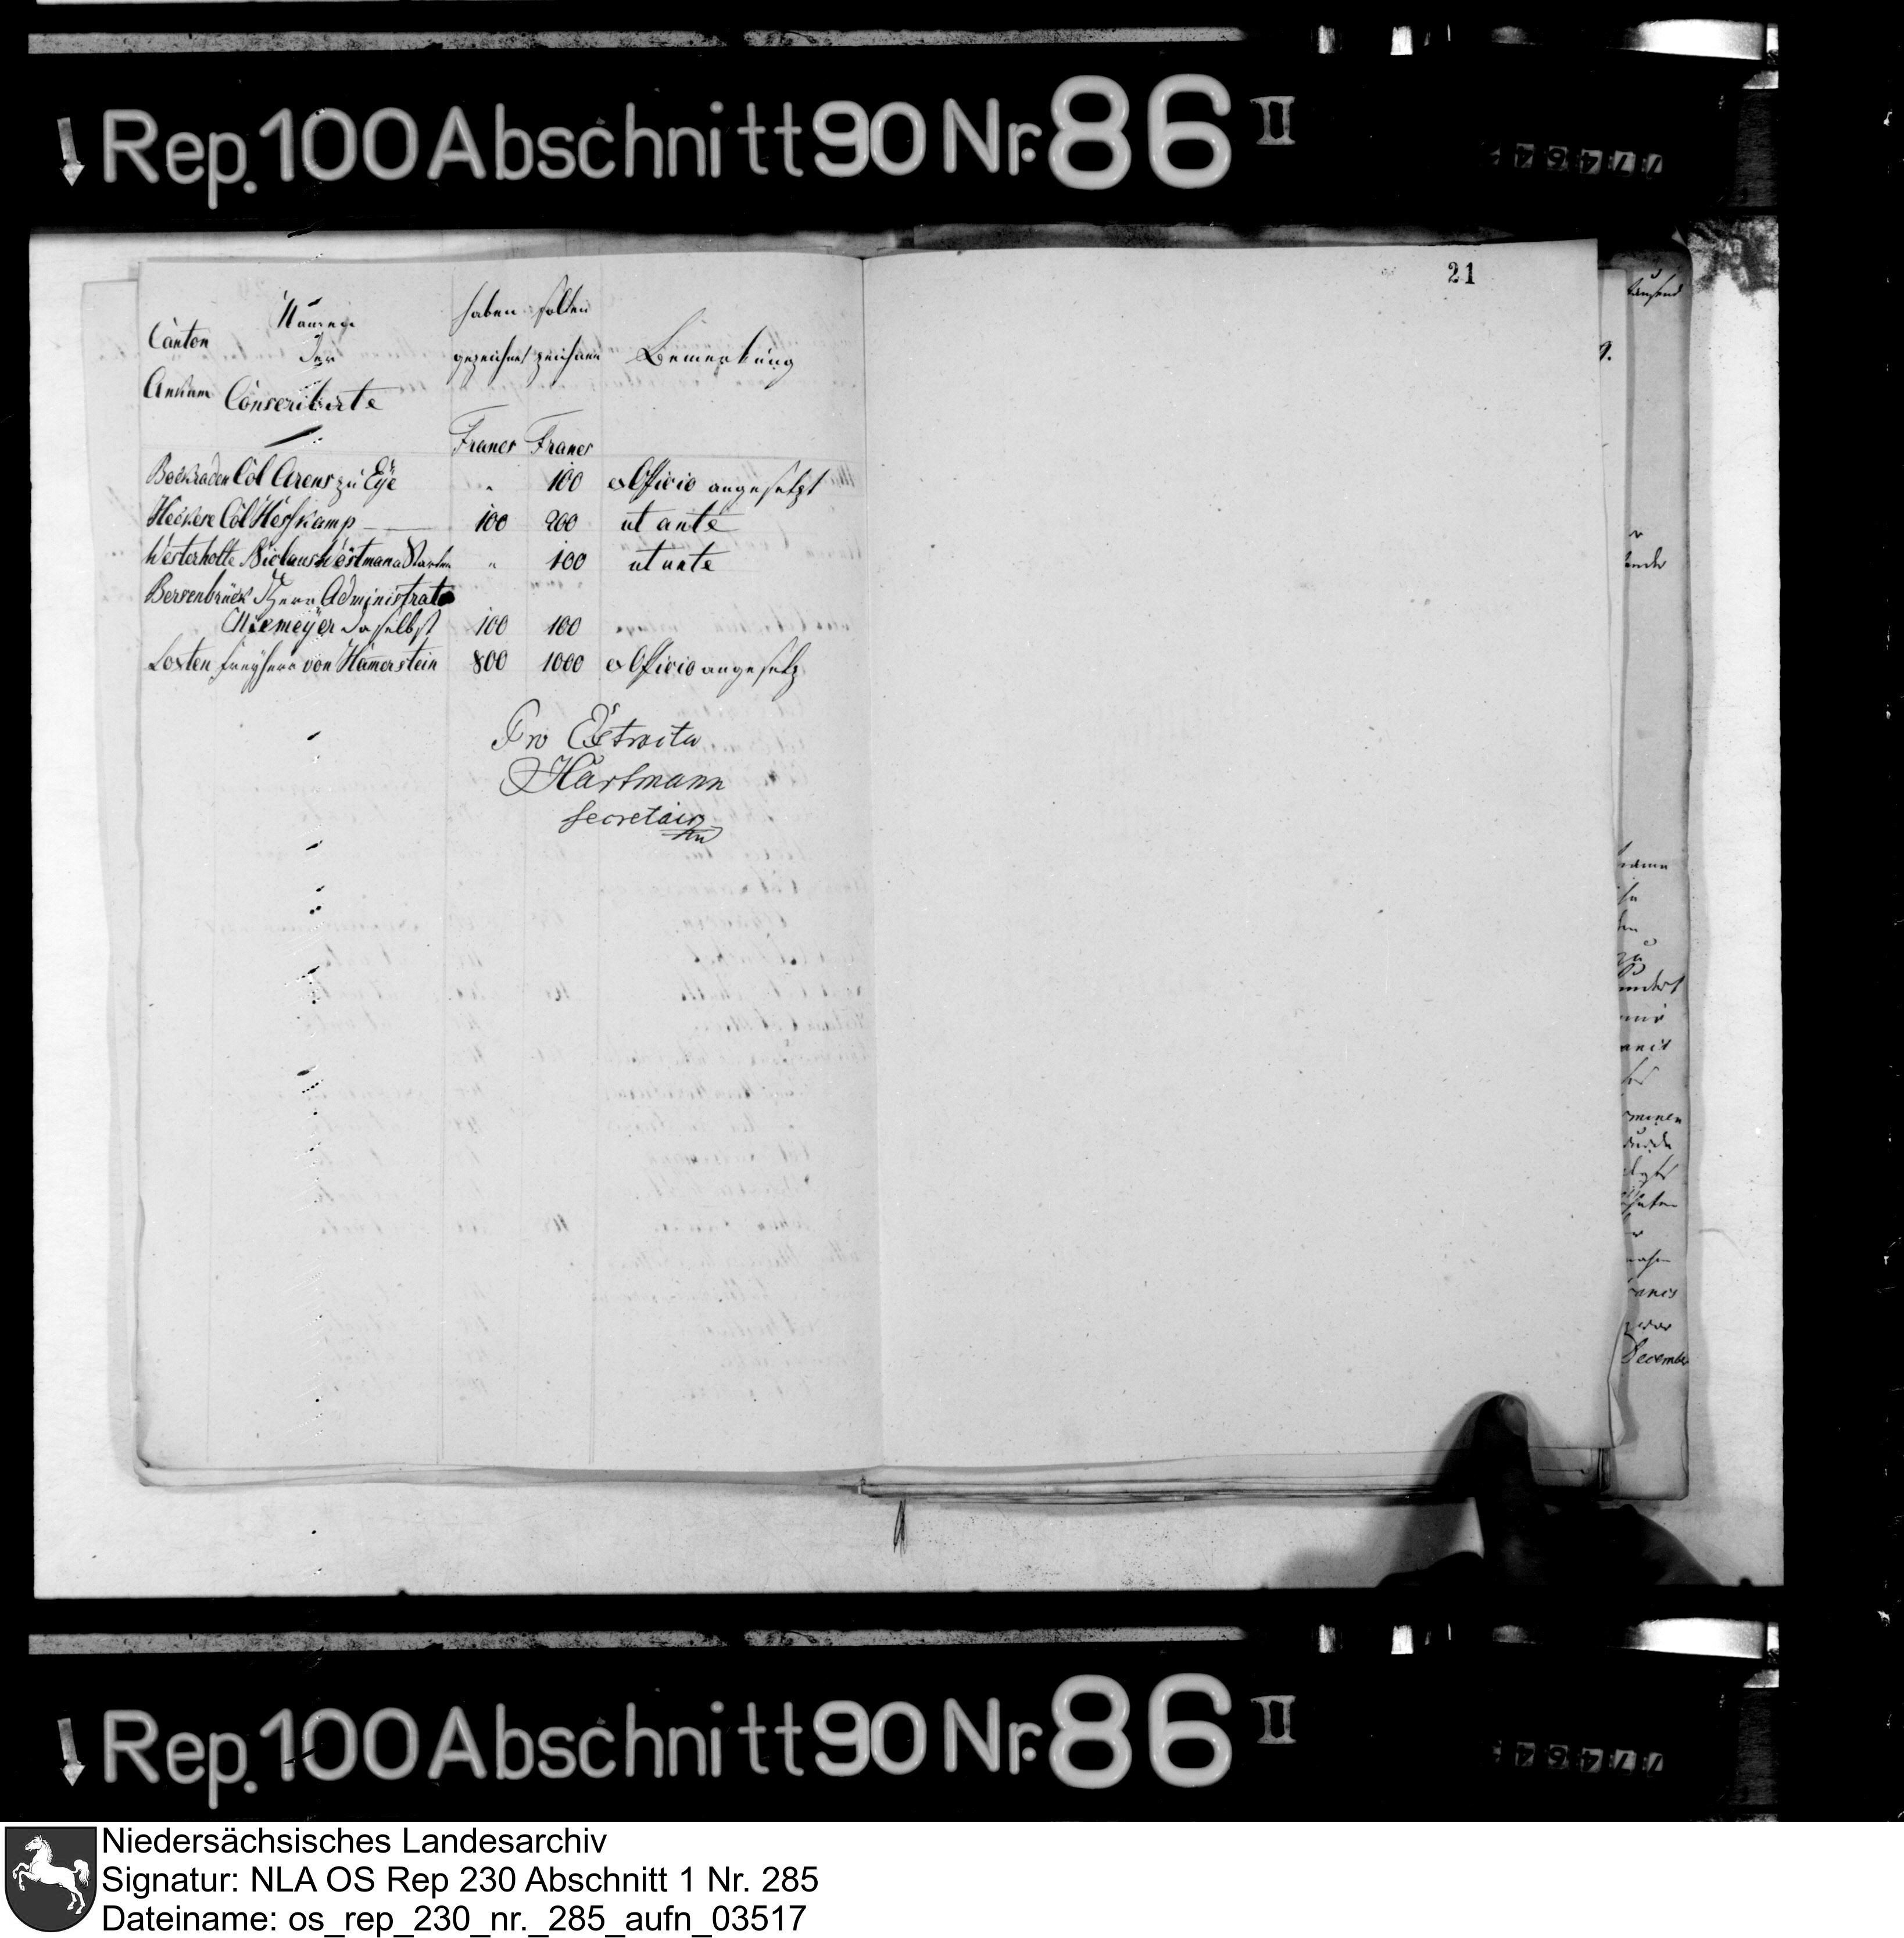 Rep. 100 Abschnitt 90 Nr. 86 II
77464
21
Canton Ankum
Namen der Conscribirte
haben gezeichnet
sollen zeichnen
Bemerkung
Francs Francs
Bockraden Col Arens zu Eÿe " 100 ex Officio angesetzt
Heckere Col Herfkamp 100 200 ut ante
Westerholte Niclaus Westmann " 100 ut ante
Bersenbrück Herr Administrator
Niemeÿer daselbst 100 100
Loxten Freÿherr von Hamerstein 800 1000 ex Officio angesetz
Pro Extractu
Hartmann
Secretair
tausend
December
Rep. 100 Abschnitt 90 Nr. 86 II
77464
Niedersächsisches Landesarchiv
Signatur: NLA OS Rep 230 Abschnitt 1 Nr. 285
Dateiname: os_rep_230_nr._285_aufn_03517